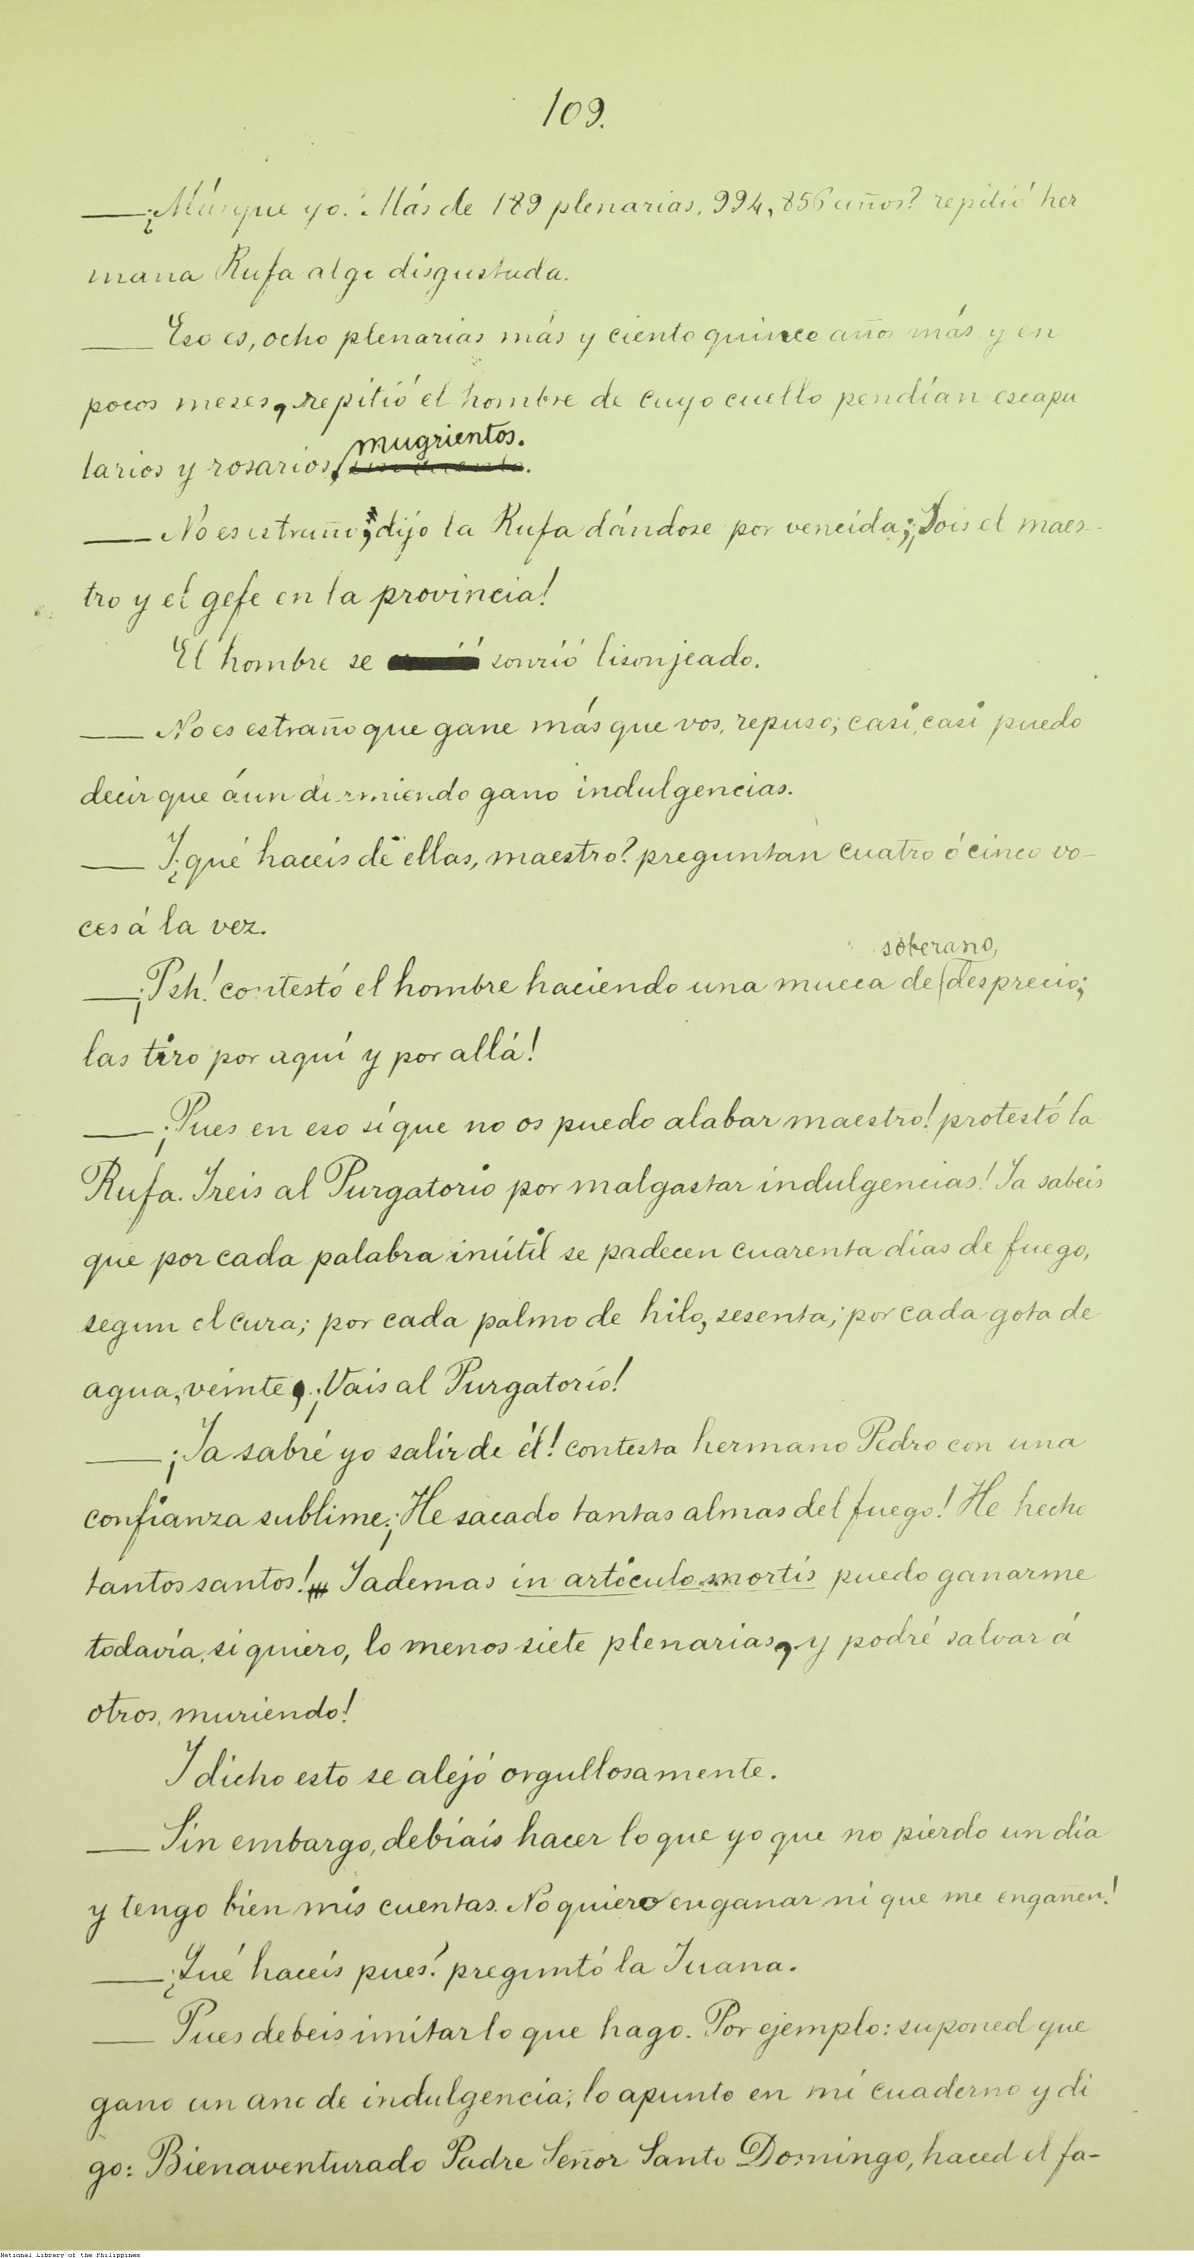 109.
—¿Más que yo? Más de 189 plenarias, 994,856 años? repitió her
mana Rufa algo disgustada.
— Eso es, ocho plenarias más y ciento quince años más y en
pocos meses, repitió el hombre de cuyo cuello pendían escapu
larios y rosarios, mugrientos.
— No es estraño; dijo la Rufa dándose por vencida; ¡Sois el maes-
tro y el gefe en la provincia!
El hombre se sonrió lisonjeado.
— No es estraño que gane más que vos, repuso; casi, casi puedo
decir que áun durmiendo gano indulgencias.
— Y ¿qué haceis de ellas, maestro? preguntan cuatro ó cinco vo-
ces á la vez.
—¡Psh! contestó el hombre haciendo una mueca de soberano, desprecio;
las tiro por aquí y por allá!
—¡Pues en eso sí que no os puedo alabar maestro! protestó la
Rufa. Ireis al Purgatorio por malgastar indulgencias! Ya sabeis
que por cada palabra inútil se padecen cuarenta días de fuego,
segun el cura; por cada palmo de hilo, sesenta; por cada gota de
agua, veinte, ¡Vais al Purgatorio!
—¡Ya sabré yo salir de él! contesta hermano Pedro con una
confianza sublime; ¡He sacado tantas almas del fuego! He hecho
tantos santos! Y ademas in artículo mortis puedo ganarme
todavía, si quiero, lo menos siete plenarias, y podré salvar á
otros, muriendo!
Y dicho esto se alejó orgullosamente.
— Sin embargo, debíais hacer lo que yo que no pierdo un día
y tengo bien mis cuentas. No quiero enganar ni que me engañen!
—¿Qué haceis pues? preguntó la Juana.
— Pues debeis imitar lo que hago. Por ejemplo: suponed que
gano un ano de indulgencia; lo apunto en mi cuaderno y di
go: Bienaventurado Padre Señor Santo Domingo, haced el fa-
National Library of the Philippines